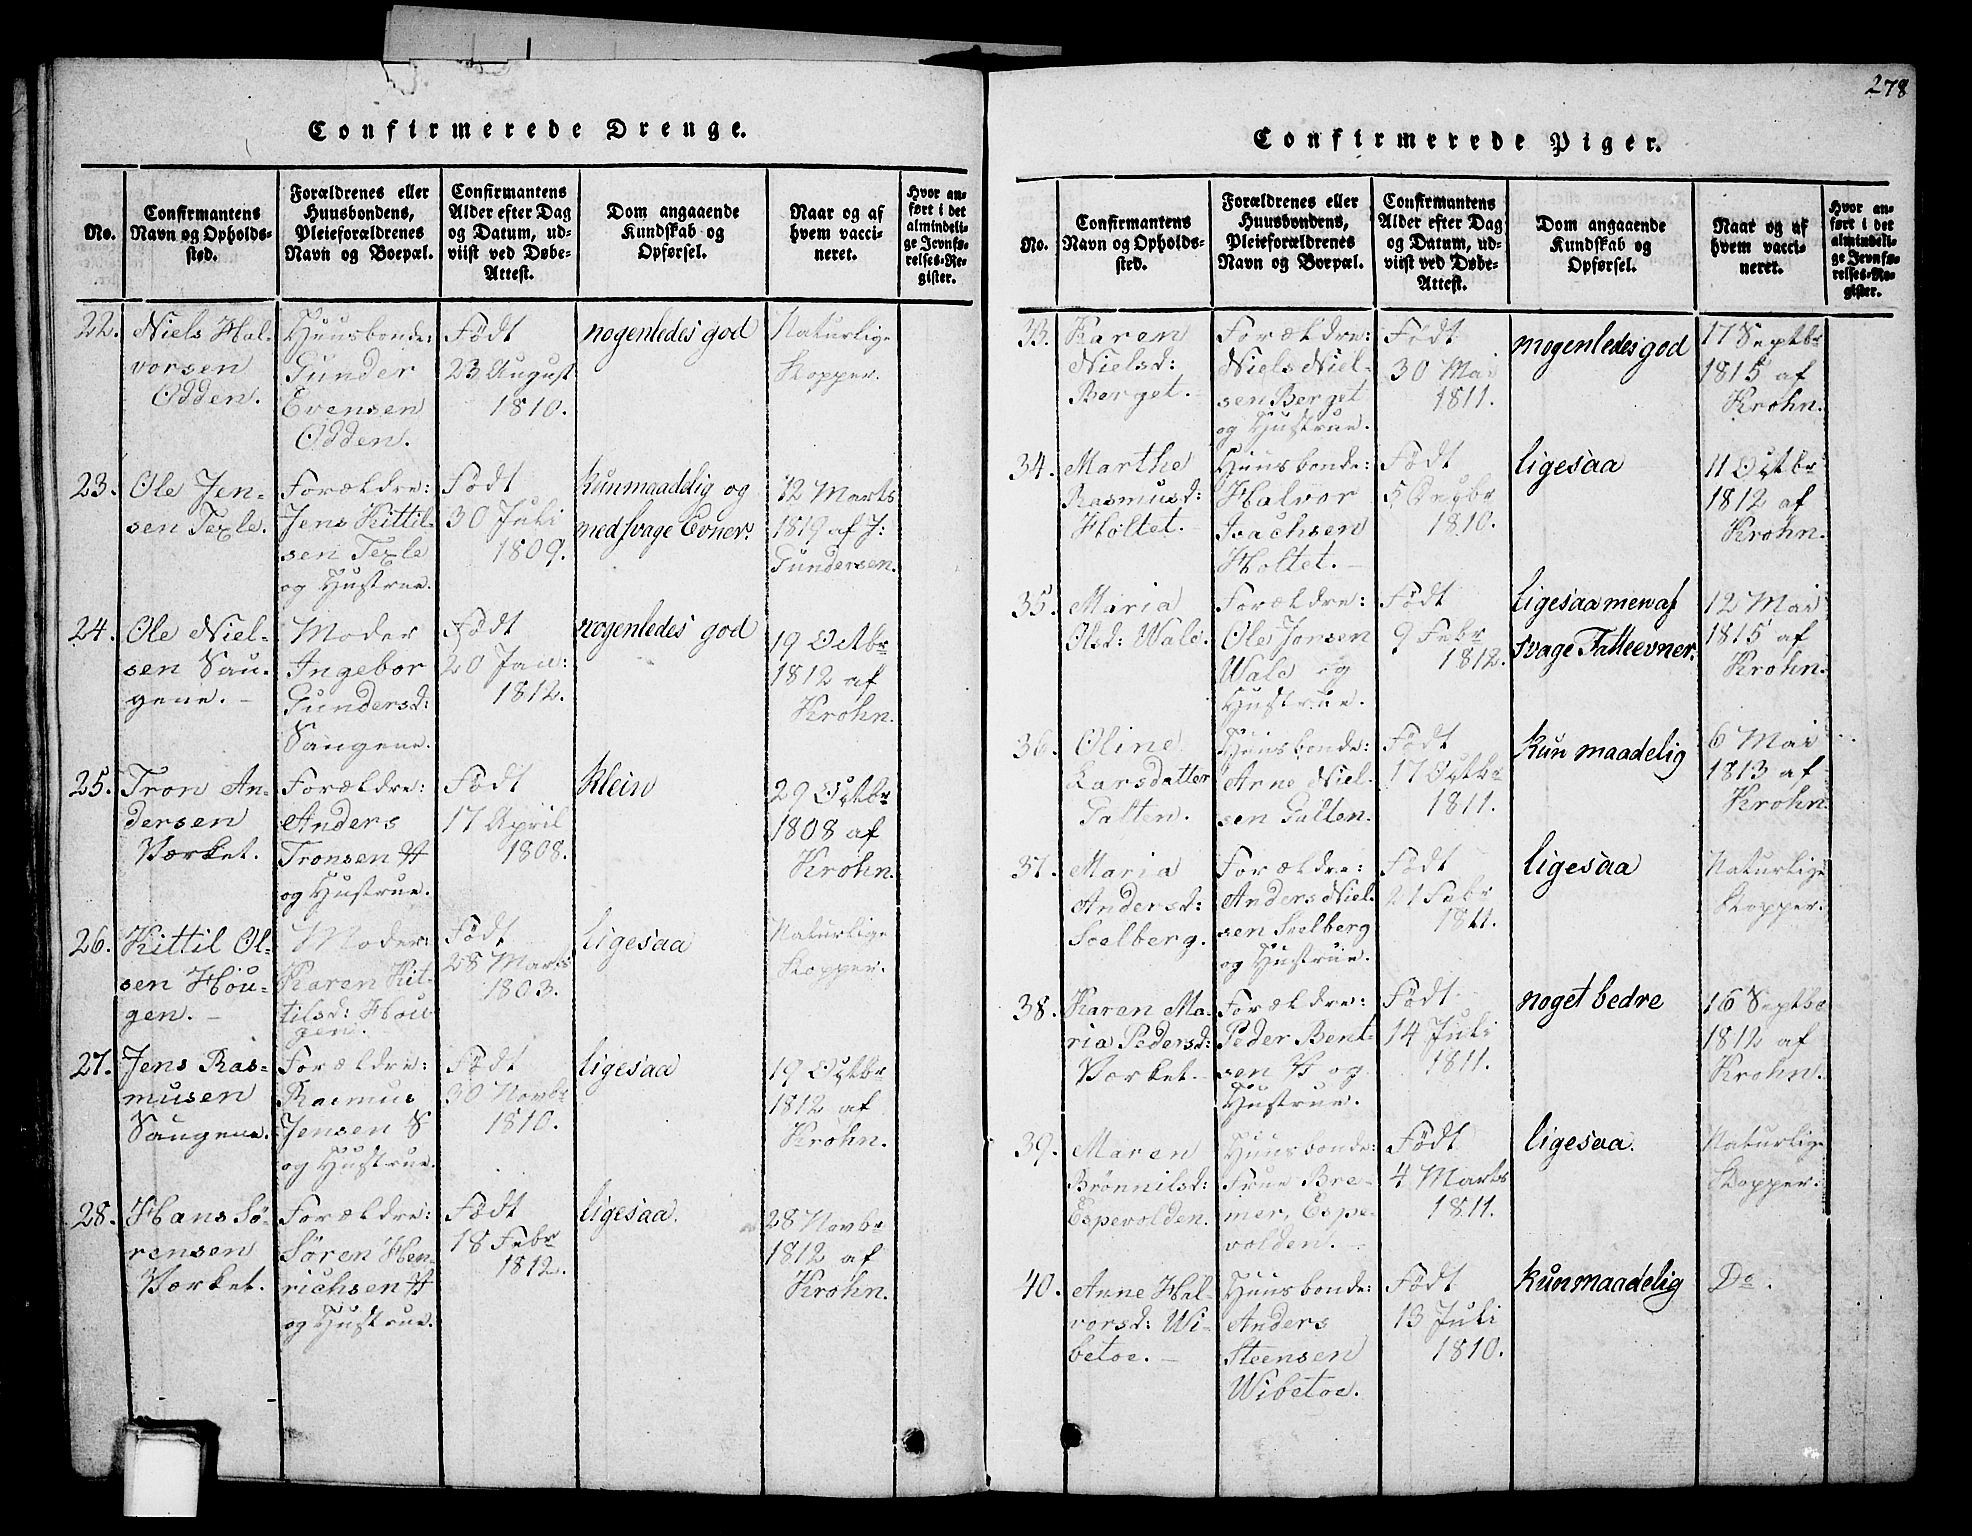 Confirmerede Drenge.
No.
Confirmantens
Navn og Opholds-
sted.
Forældrenes eller
Huusbondens,
Pleieforældrenes
Navn og Boepæl.
Confirmantens
Alder efter Dag
og Datum, ud-
viist ved Døbe-
Attest.
Dom angaaende
Kundskab og
Opførsel.
Naar og af
hvem vacci-
neret.
Hvor an-
ført i det
almindeli-
ge Jevnfø-
relses-Re-
gister.
22.
Niels Hal-
vorsen
Odden.
Huusbonde:
Gunder
Evensen
Odden.
Født
23 August
1810.
nogenledes god
Naturlige
Kopper.
23.
Ole Jen-
sen Texle.
Forældre:
Jens Kittil-
sen Texle
og Hustrue.
Født
30 Juli
1809.
kun maadelig og
med svage Evner.
12 Marts
1819 af J:
Gundersen.
24.
Ole Niel-
sen Sau-
gene. -
Moder
Ingebor
Gundersd:
Saugene.
Født
20 Jan:
1812.
nogenledes god
19 Octbr
1812 af
Krohn.
25.
Tron An-
dersen
Værket.
Forældre:
Anders
Tronsen W
og Hustrue.
Født
17 April
1808.
klein
29 Octbr
1808 af
Krohn.
26.
Kittil Ol-
sen Hou-
gen. -
Moder:
Karen Kit-
tilsd: Hou-
gen.
Født
28 Marts
1803.
ligesaa
Naturlige
Kopper.
27.
Jens Ras-
musen
Saugene.
Forældre:
Rasmus
Jensen S
og Hustrue.
Født
30 Novbr
1810.
ligesaa
19 Octbr
1812 af
Krohn.
28.
Hans Sö-
rensen
Værket.
Forældre:
Sören Hen-
richsen W
og Hustrue.
Født
18 Febr
1812.
ligesaa.
28 Novbr
1812 af
Krohn.
278
Confirmerede Piger.
No.
Confirmantens
Navn og Opholds-
sted.
Forældrenes eller
Huusbondens,
Pleieforældrenes
Navn og Boepæl.
Confirmantens
Alder efter Dag
og Datum, ud-
viist ved Døbe-
Attest.
Dom angaaende
Kundskab og
Opførsel.
Naar og af
hvem vacci-
neret.
Hvor an-
ført i det
almindeli-
ge Jevnfø-
relses-Re-
gister.
33.
Karen
Nielsd:
Berget. -
Forældre:
Niels Niel-
sen Berget
og Hustrue.
Født
30 Mai
1811.
nogenledes god
17 Septbr
1815 af
Krohn.
34.
Marthe
Rasmusd:
Holtet. -
Huusbonde:
Halvor
Isachsen
Holtet. -
Født
1810.
ligesaa
11 Octbr
1812 af
Krohn.
35.
Maria
Olsd: Wale.
Forældre:
Ole Jonsen
Wale og
Hustrue.
Født
9 Febr
1812.
ligesaa men af
svage Fatteevner.
12 Mai
1815 af
Krohn.
36.
Oline
Larsdatter
Galten.
Huusbonde:
Arne Niel-
sen Galten.
Født
17 Octbr
1811.
kun maadelig
6 Mai
1813 af
Krohn.
37.
Maria
Andersd:
Soelberg.
Forældre:
Anders Niel-
sen Soelberg
og Hustrue.
Født
21 Febr
1811.
ligesaa
Naturlige
Kopper.
38.
Karen Ma-
ria Pedersd:
Værket. -
Forældre:
Peder Bent-
sen W og
Hustrue.
Født
14 Juli
1811.
noget bedre
16 Septbr
1812 af
Krohn.
39.
Maren
Brönnilsd:
Espevolden.
Huusbonde:
Frue Bre-
mer, Espe-
volden. -
Født
4 Marts
1811.
ligesaa.
Naturlige
Kopper.
40.
Anne Hal-
vorsd: Wi-
betoe. -
Huusbonde:
Anders
Steensen
Wibetoe.
Født
13 Juli
1810.
kun maadelig
Do.